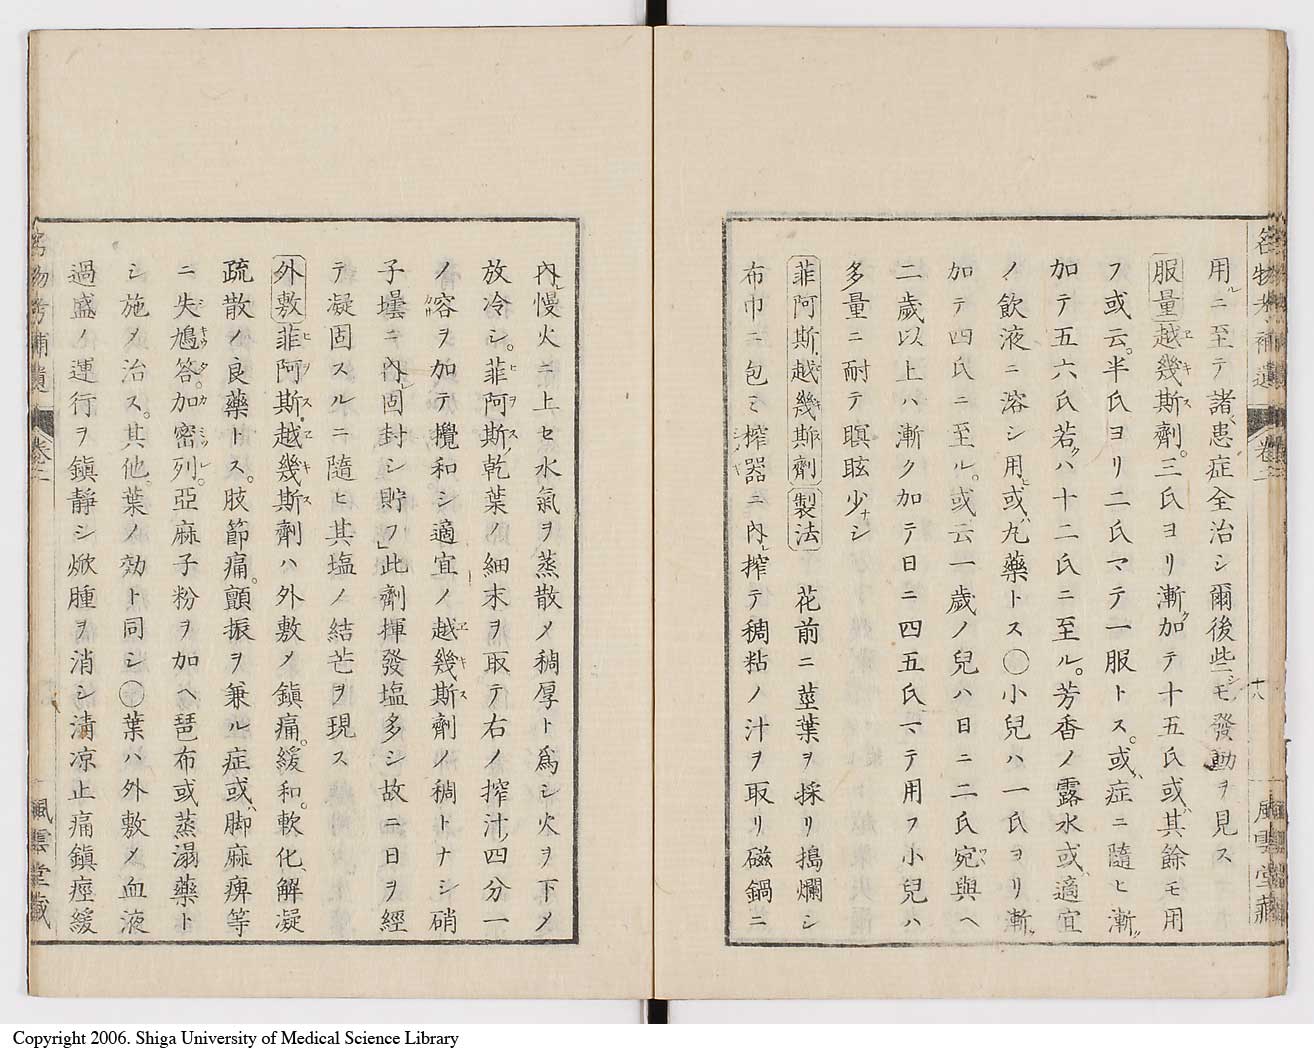 名物考補遺 卷二 十八 風雲堂藏
用ルニ至テ諸患症全治シ爾後些シモ發動ヲ見ス
服量 越幾斯劑。三氏ヨリ漸クニ加テ十五氏或ハ其餘モ用
フ或云。半氏ヨリ二氏マテ一服トス。或ハ症ニ隨ヒ漸ク
加テ五六氏若クハ十二氏ニ至ル。芳香ノ露水或ハ適宜
ノ飲液ニ溶シ用ヒ或ハ丸藥トス〇小兒ハ一氏ヨリ漸ク
加テ四氏ニ至ル。或云一歲ノ兒ハ日ニ二氏宛與ヘ
二歲以上ハ漸ク加テ日ニ四五氏マテ用フ小兒ハ
多量ニ耐テ瞑眩少ナシ
菲阿斯越幾斯劑 製法 花前ニ莖葉ヲ採リ搗爛シ
布巾ニ包ミ搾器ニ內レ搾テ稠粘ノ汁ヲ取リ磁鍋ニ
內レ慢火ニ上セ水氣ヲ蒸散メ稠厚ト爲シ火ヲ下メ
放冷シ。菲阿斯乾葉ノ細末ヲ取テ右ノ搾汁四分一
ノ容ヲ加テ攪和シ適宜ノ越幾斯劑ノ稠トナシ硝
子壜ニ內レ固封シ貯フ」此劑揮發塩多シ故ニ日ヲ經
テ凝固スルニ隨ヒ其塩ノ結芒ヲ現ス
外敷 菲阿斯越幾斯劑ハ外敷メ鎮痛。緩和。軟化、解凝
疏散ノ良藥トス。肢節痛。顫振ヲ兼ル症或ハ脚麻痺等
ニ失鳩答。加密列。亞麻子粉ヲ加ヘ琶布或蒸溻藥ト
シ施メ治ス。其他。葉ノ効ト同シ〇葉ハ外敷メ血液
過盛ノ運行ヲ鎮靜シ焮腫ヲ消シ淸凉止痛鎮痙緩
名物考補遺 卷二 風雲堂藏
Copyright 2006. Shiga University of Medical Science Library